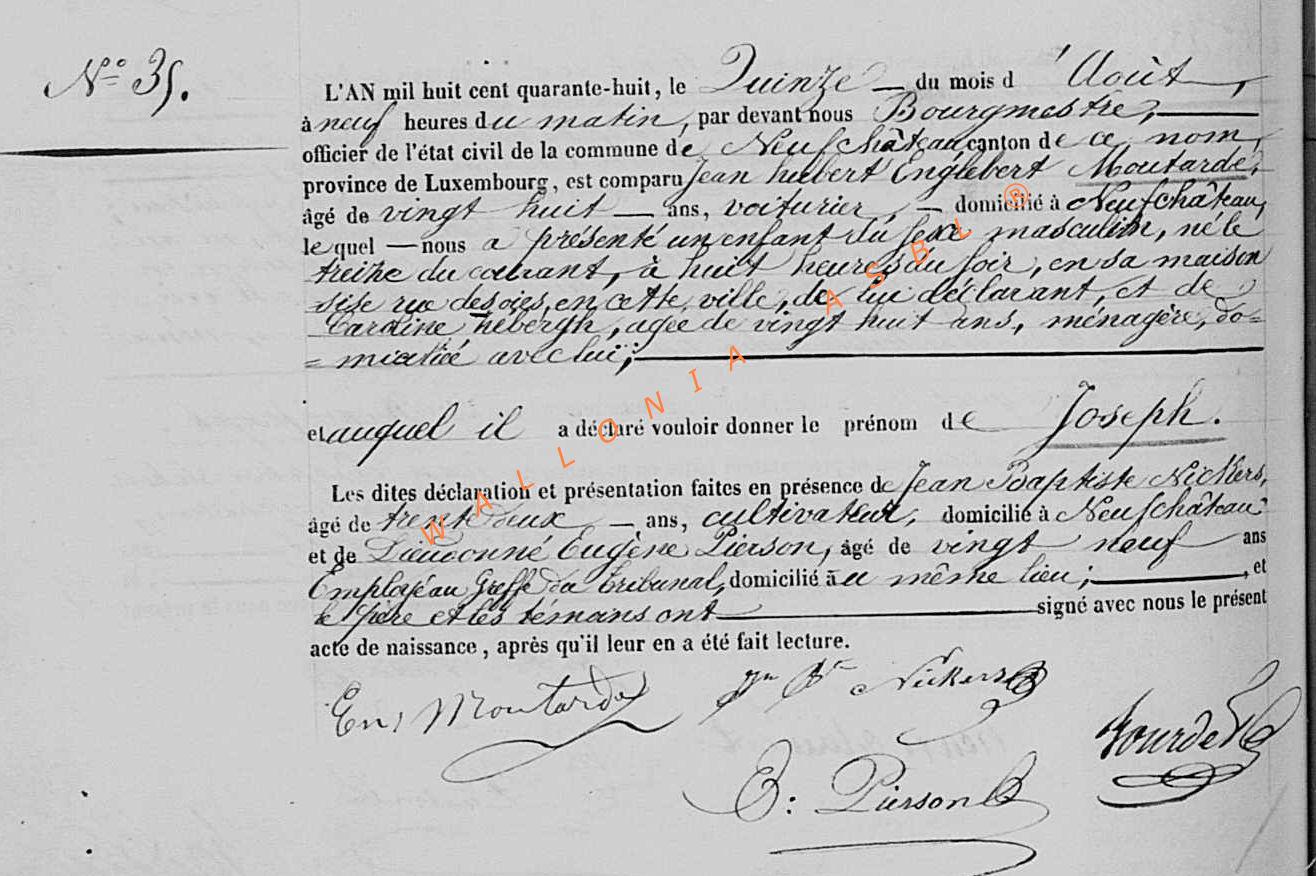 N° 35.
L'AN mil huit cent quarante-huit, le Quinze — du mois d'Août,
à neuf heures du matin, par devant nous Bourgmestre,
officier de l'état civil de la commune de Neufchâteau, canton de ce nom,
province de Luxembourg, est comparu Jean hubert Englebert Moutarde,
âgé de vingt huit — ans, voiturier, — domicilié à Neufchâteau,
lequel — nous a présenté un enfant du sexe masculin, né le
treize du courant, à huit heures du soir, en sa maison
sise rue des oies, en cette ville, de lui déclarant, et de
Caroline hebergh, agée de vingt huit ans, ménagère, do=
=micilié avec lui;
et auquel il a déclaré vouloir donner le prénom de Joseph.
Les dites déclaration et présentation faites en présence de Jean Baptiste Nickers,
âgé de trente deux, — ans, cultivateur, domicilié à Neufchâteau
et de Dieudonné Eugène Pierson, âgé de vingt neuf ans
Employé au Greffe du tribunal, domicilié au même lieu; , et
le père et les témoins ont signé avec nous le présent
acte de naissance, après qu'il leur en a été fait lecture.
En, Moutarde
Jn Bte Nickers
E: Pierson
WALLONIA ASBL ®